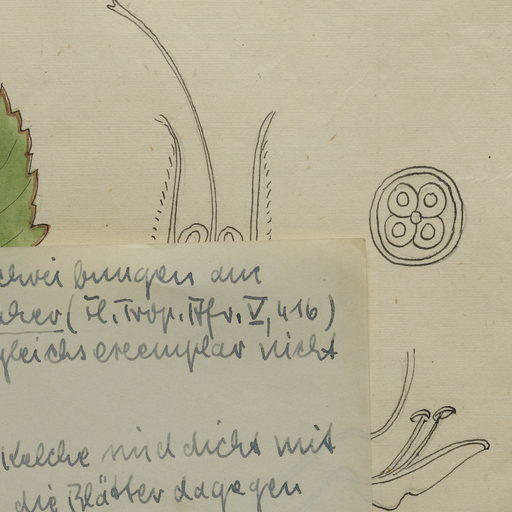 schreibungen am
(Fl. Trop. Afr. V, 416)
gleichsexemplar nicht
Kelche sind dicht mit
die Blätter dagegen